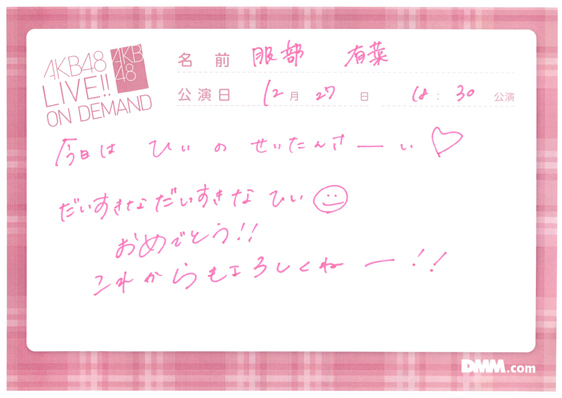 AKB48
LIVE!!
ON DEMAND
AKB
48
名前 服部 有菜
公演日 12月27日 18:30公演
今日は ひぃの せいたんさーい♡
だいすきなだいすきな ひぃ
おめでとう!!
これからもよろしくねー!!
DMM.com